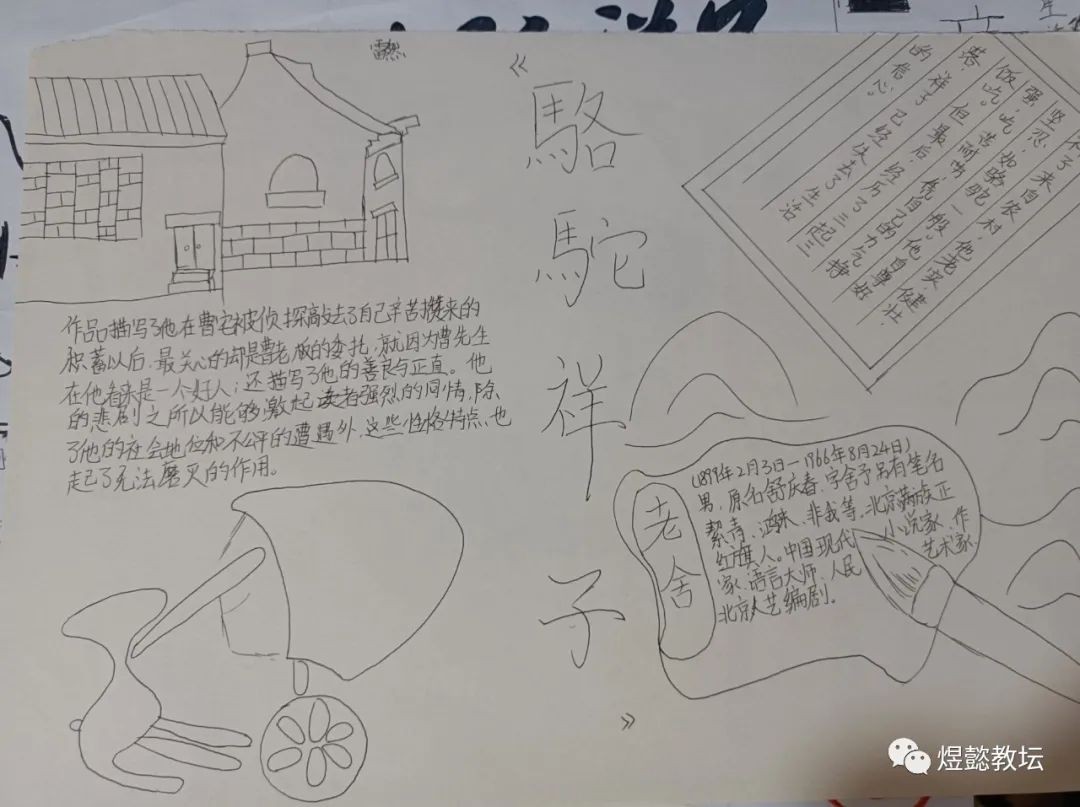 雷然
《駱駝祥子》
子来自农村，他老实，健壮
坚忍，如骆驼一般。他自尊好
强，吃苦耐劳，凭自己的力气挣
饭吃。但最后，经历了三起三
落，祥子已经失去了生活
的信心。
作品描写了他在曹宅被侦探敲去了自己辛苦攒来的
积蓄以后，最关心的却是曹老板的委托，就因为曹先生
在他看来是一个好人；还描写了他的善良与正直。他
的悲剧之所以能够激起读者强烈的同情，除
了他的社会地位和不公平的遭遇外，这些性格特点也
起了无法磨灭的作用。
老舍
(1899年2月3日—1966年8月24日)
男，原名舒庆春，字舍予另有笔名
絜青、鸿来、非我等，北京满族正
红旗人。中国现代小说家、作
家、语言大师、人民艺术家
北京人艺编剧。
煜懿教坛